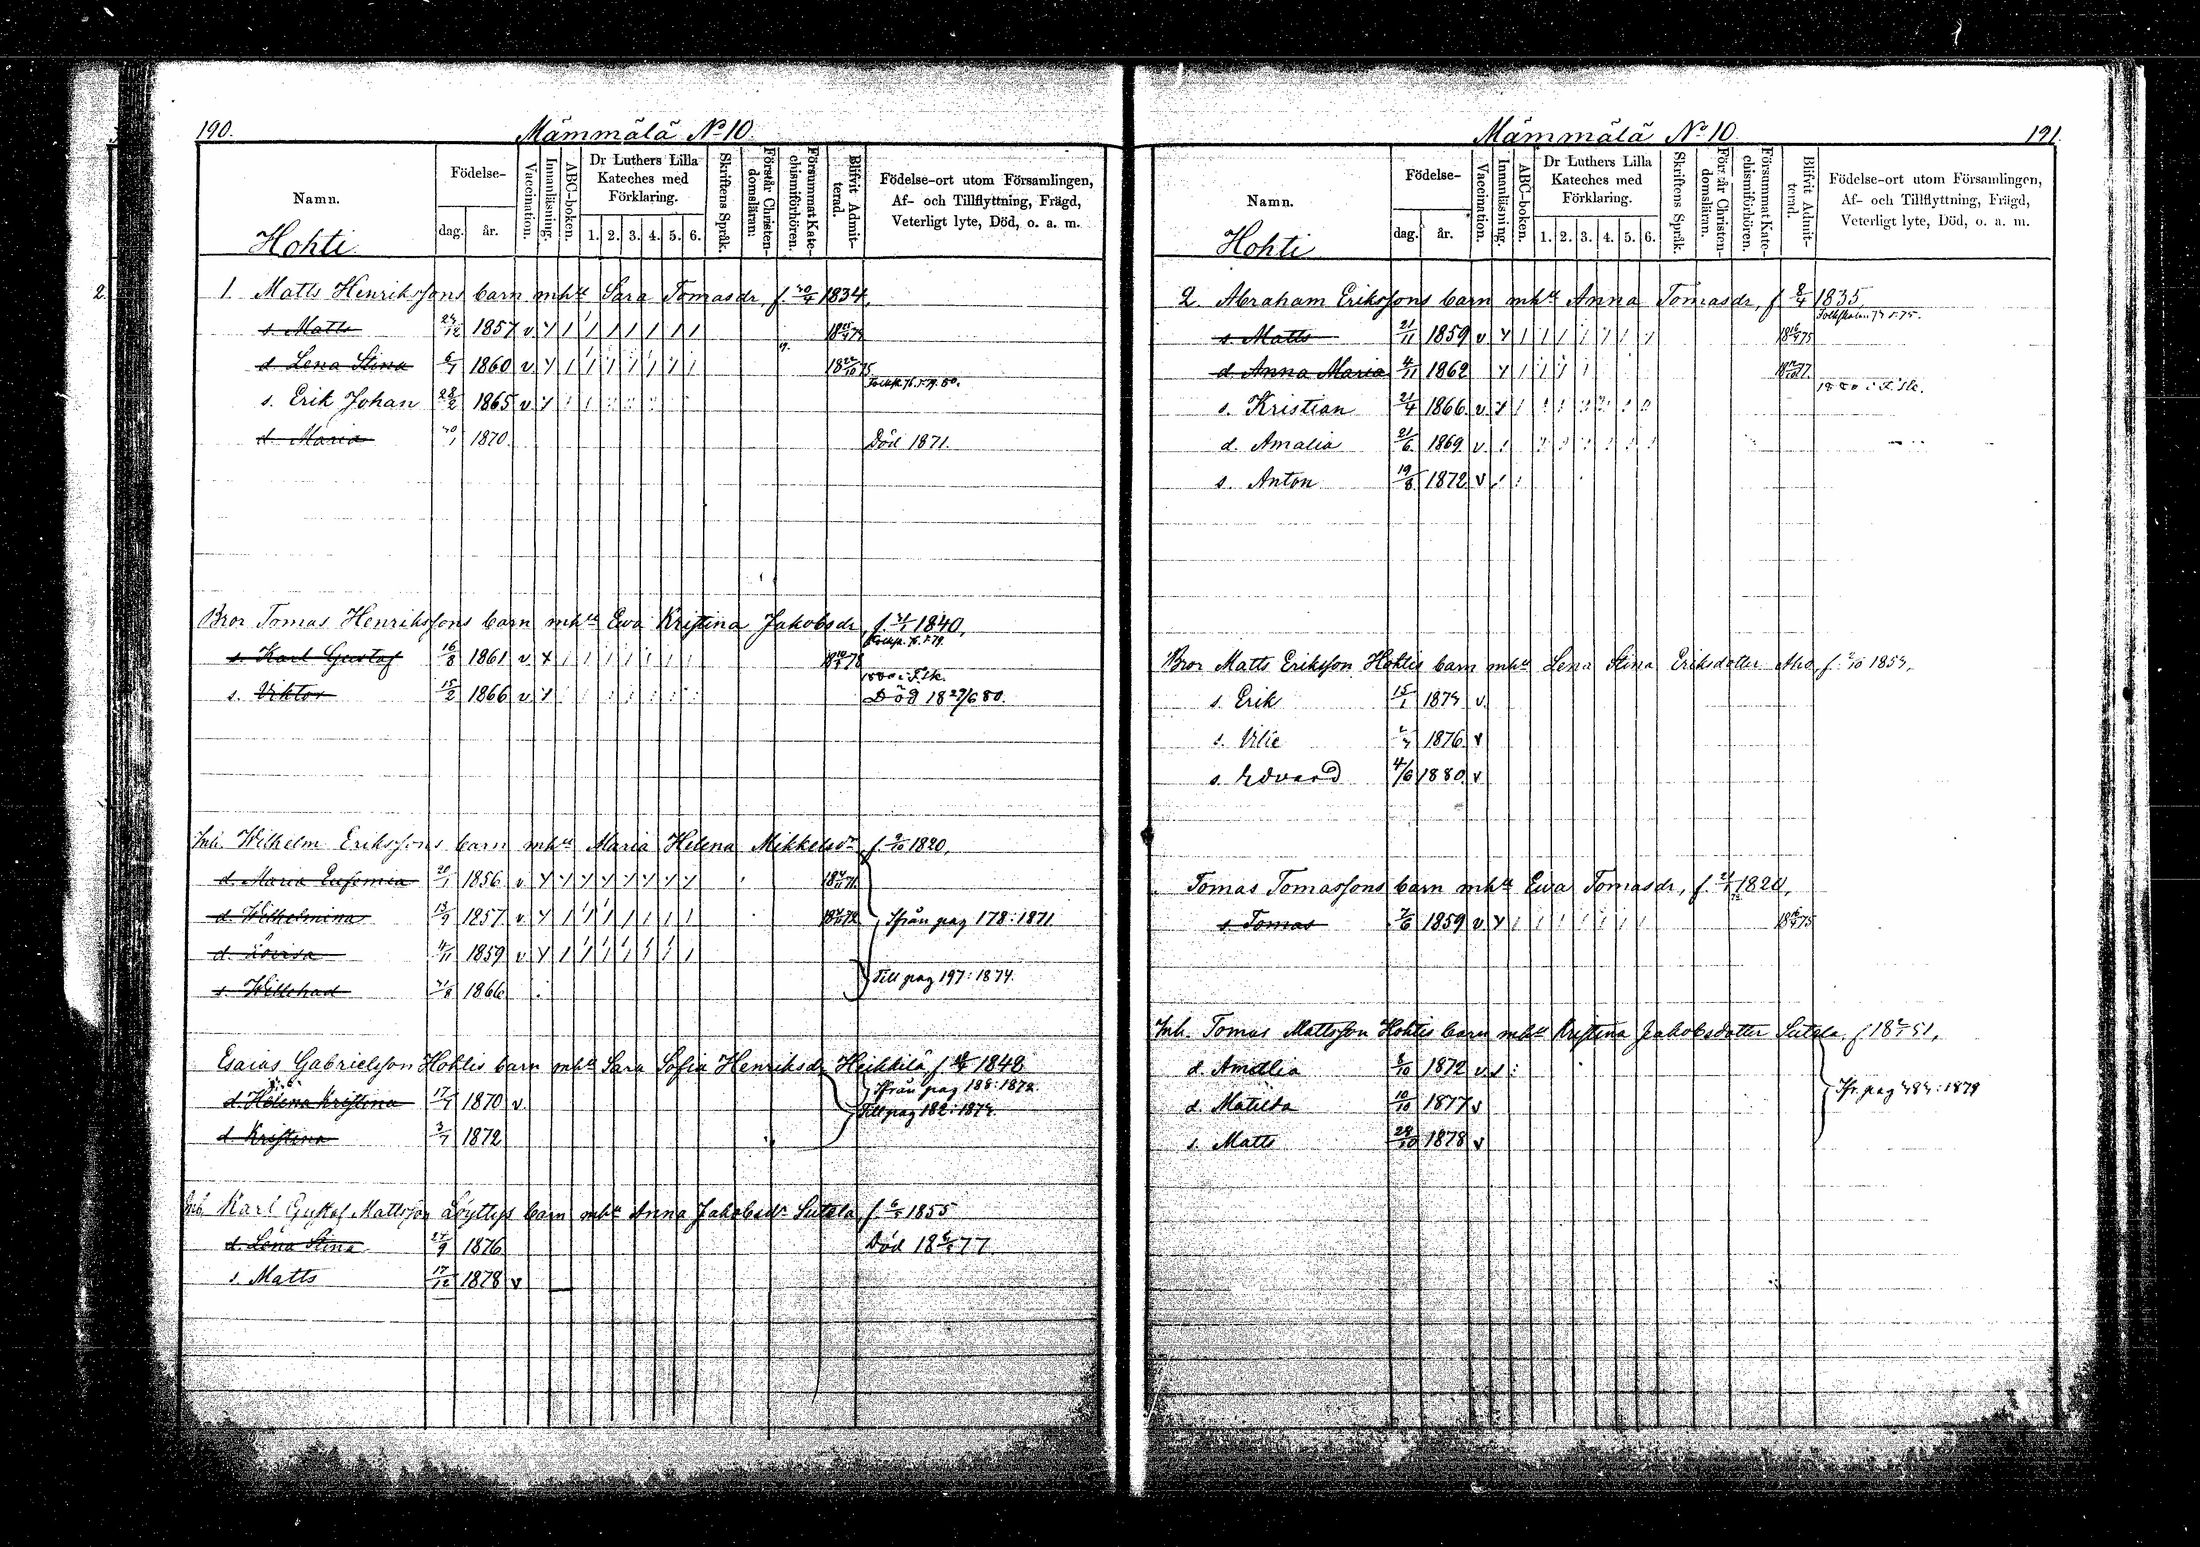 190.
Mämmälä No 10.
Namn.
Födelse-
dag.
år.
Vaccination.
Innanläsning.
ABC-boken.
Dr Luthers Lilla
Kateches med
Förklaring.
1. 2. 3. 4. 5. 6.
Skriftens Språk.
Förstår Christen-
domsläran.
Försummat Kate-
chismiförhören.
Blifvit Admit-
terad.
Födelse-ort utom Församlingen,
Af- och Tillflyttning, Frägd,
Veterligt lyte, Död, o. a. m.
Hohti
1. Matts Henrikssons barn mhu Sara Tomasdr, f. 1834,
s. Matts 24/12 1857 v
d. Lena Stina 6/1 1860 v
s. Erik Johan 28/2 1865 v
d. Maria 1870. Död 1871.
Bror Tomas Henrikssons barn mhu Ewa Kristina Jakobsdr, f. 1840,
s. Karl Gustaf 16/8 1861 v
1880 i F.sk.
s. Viktor 15/2 1866 v Död 18 27/6 80.
Inh. Wilhelm Erikssons barn mhu Maria Helena Mikkelsdr f. 9/10 1820,
d. Maria Eufemia 20/1 1856 v
d. Wilhelmina 13/9 1857 v Ifrån pag 178: 1871.
d. Lovisa 4/11 1859 v
Till pag 197: 1874.
s. Willehad 1866
Esaias Gabrielsson Hohtis barn mhu Sara Sofia Henriksdr Heikkilä, f. 1848
Ifrån pag 188: 1872.
d. Helena Kristina 17/1 1870 v. Till pag 182: 1874.
d. Kristina 3/7 1872
Inh. Karl Gustaf Mattsson Löyttys barn mhu Anna Jakobsdr Sutela f. 1855
d. Lena Stina 24/9 1876 Död 18 77
s. Matts 17/12 1878 v
Mämmälä No 10.
191.
Namn.
Födelse-
dag.
år.
Vaccination.
Innanläsning.
ABC-boken.
Dr Luthers Lilla
Kateches med
Förklaring.
1. 2. 3. 4. 5. 6.
Skriftens Språk.
Förstår Christen-
domsläran.
Försummat Kate-
chismiförhören.
Blifvit Admit-
terad.
Födelse-ort utom Församlingen,
Af- och Tillflyttning, Frägd,
Veterligt lyte, Död, o. a. m.
Hohti
2. Abraham Erikssons barn mhu Anna Tomasdr, f 8/4 1835,
s. Matts 21/11 1859 v
d. Anna Maria 4/11 1862
1880 i F.sk.
s. Kristian 21/4 1866 v
d. Amalia 21/6 1869 v.
s. Anton 19/8 1872 v
Bror Matts Eriksson Hohtis barn mhu Lena Stina Eriksdotter Aho f.
s. Erik 15/1 1874 v.
s. Vilie 1876 v
s. Edvard 4/6 1880. v
Tomas Tomassons barn mhu Ewa Tomasdr, f. 1820,
s. Tomas 7/6 1859 v
Inh. Tomas Mattsson Hohtis barn mhu Kristina Jakobsdotter Sutela, f 18 51,
d. Amellia 8/10 1872 v
Ifr. pag 484: 1879
d. Matilda 10/10 1877 v
s. Matts 28/10 1878 v